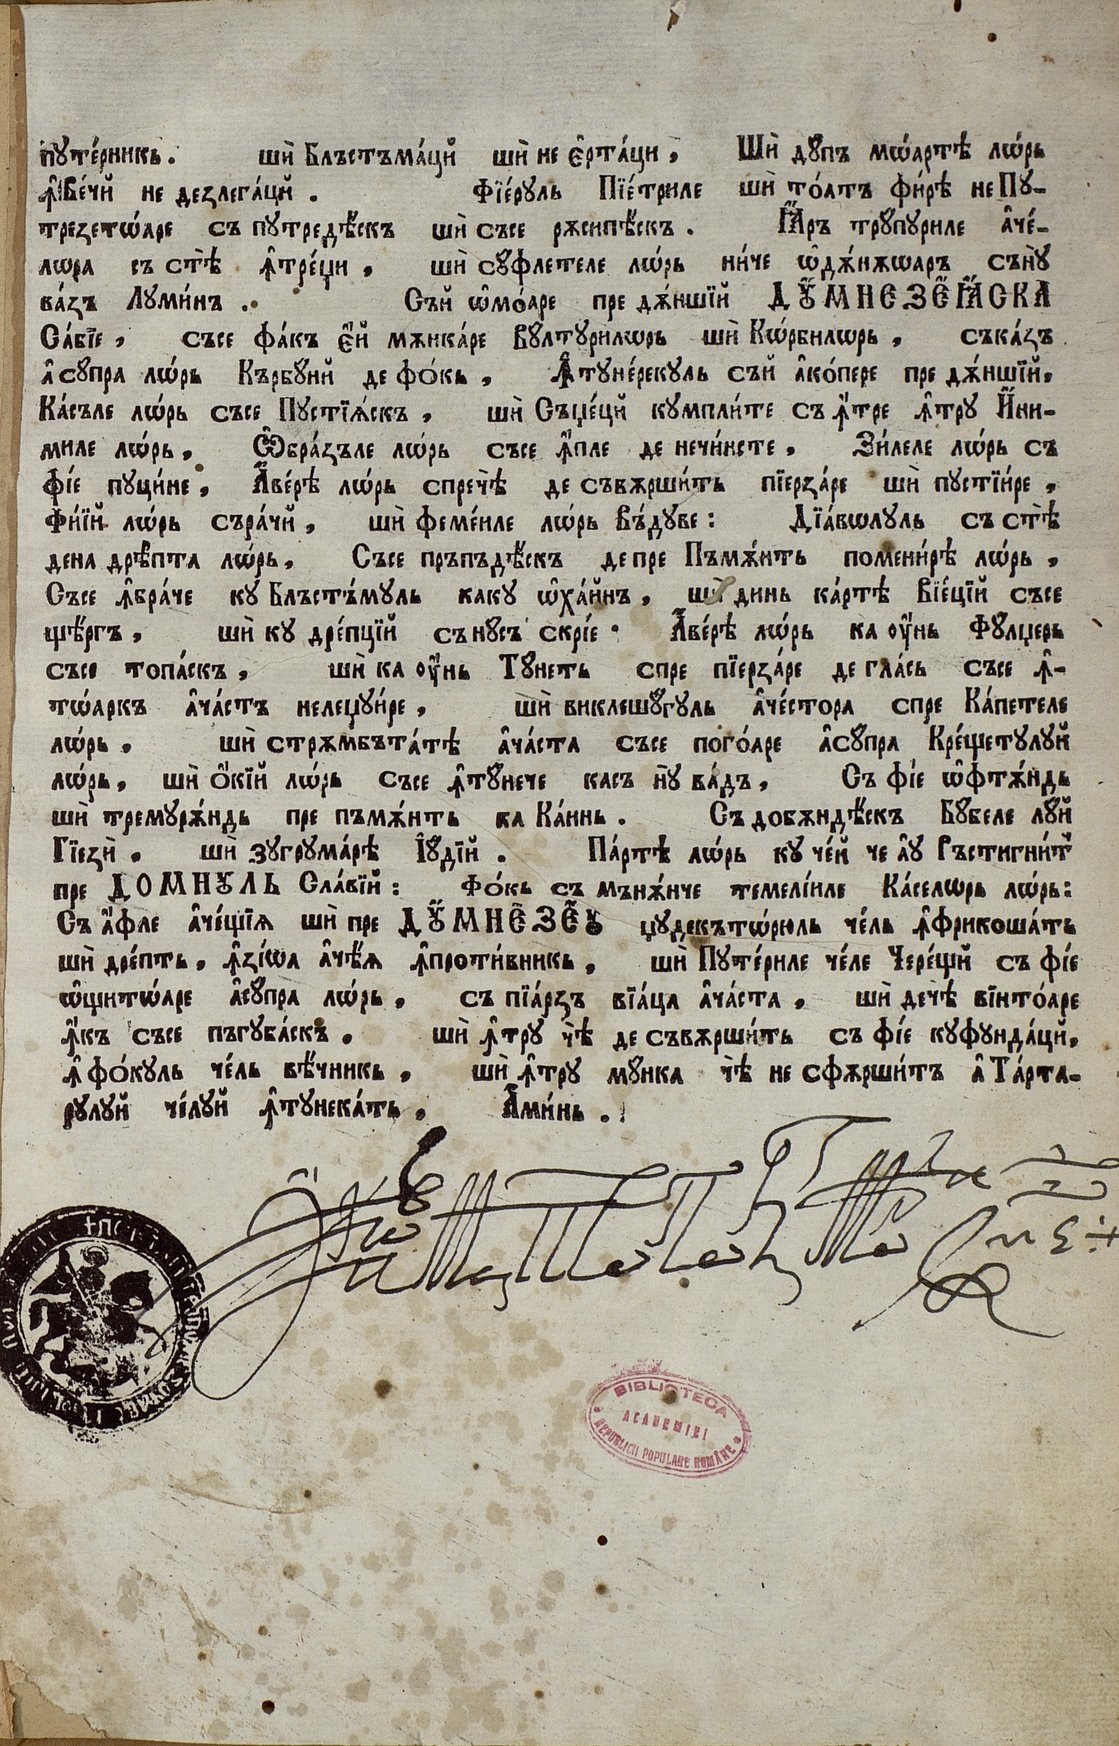 пꙋте́рникь. шѝ Блъстъма́цй шѝ не є҆рта́ци, Шѝ дꙋпъ мѡ́артѣ лѡ́рь
ꙟ҆Ве́чй не дезлега́цй. Фїе́рꙋль Пїе́триле шѝ то́атъ фи́рѣ не Пꙋ-
трезетѡ́аре съ пꙋтредѣ́скъ шѝ съсе рѫсипѣ́скъ. Ꙗ҆́ръ трꙋпꙋриле а҆че́-
лѡра съ стѣ̀ ꙟ҆тре́џи, шѝ сꙋфлетеле лѡ́рь ни́че ѡ҆дѫ́нѫѡаръ сън̀ꙋ
ва́зъ Лꙋми́нъ. Съй ѡ҆мо́аре пре дѫ́ншїй ДꙊМНЕЗЕꙖСКА
Са́бїе, съсе фа́къ є҆́й мѫнка́ре Вꙋлтꙋрилѡрь шѝ Кѡ́рбилѡрь, съка́зъ
а҆сꙋпра лѡ́рь Кърбꙋнй де фо́кь, Ꙟ҆тꙋне́рекꙋль съй а҆ко́пере пре дѫ́ншїй,
Ка́съле лѡ́рь съсе Пꙋстїѧ́скъ, шѝ Съџе́цй кꙋмпли́те съ ꙟ҆́тре ꙟ҆трꙋ И҆́ни-
миле лѡ́рь, Ѡ҆бра́зъле лѡ́рь съсе ꙟ҆́пле де нечи́нсте, Зи́леле лѡ́рь съ
фі́е пꙋци́не, А҆ве́рѣ лѡ́рь спречѣ̀ де съвѫрши́ть пїерза́ре шѝ пꙋстїи́ре,
Фи́їй лѡ́рь съра́чй, шѝ феме́иле лѡ́рь въ́дꙋве: Дїа́вѡлꙋль съ стѣ̀
дена дрѣ́пта лѡ́рь, Съсе пръпъдѣ́скъ де пре Пъмѫ́нть помени́рѣ лѡ́рь,
Съсе ꙟ҆бра́че кꙋ́ Блъстъ́мꙋль каку ѡ҆ха́йнъ, шѝ динь ка́ртѣ Вїе́цїй съсе
щѣ́ргъ, шѝ кꙋ дре́пцїй сънꙋсъ скрі́е. А҆ве́рѣ лѡ́рь ка оу҆́нь Фꙋлџерь
съсе топа́скъ, шѝ ка оу҆́нь Тꙋнеть спре пїерза́ре де гла́сь съсе ꙟ҆-
тѡ́аркъ а҆ча́стъ нелеџꙋи́ре, шѝ виклешꙋгꙋль а҆че́стора спре Ка́петеле
лѡ́рь, шѝ стрѫмбъта́тѣ а҆ча́ста съсе пого́аре а҆сꙋпра Кре́щетꙋлꙋй
лѡ́рь, шѝ ѻ҆́кїй лѡ́рь съсе ꙟ҆тꙋнече касъ нꙋ̀ ва́дъ, Съ фі́е ѡ҆фтѫ́ндь
шѝ тремꙋрѫ́ндь пре пъмѫ́нть ка Ка́инь. Съ добѫндѣ́скъ Бꙋбеле лꙋй
Гїезѝ, шѝ зꙋгрꙋма́рѣ Їꙋдїй. Па́ртѣ лѡ́рь кꙋ че́й че а҆ꙋ Ръстигни́т
пре ДОМНꙊЛЬ Сла́вїй: Фо́кь съ мънѫ́нче темелі́иле Ка́селѡрь лѡ́рь:
Съ а҆́фле а҆че́щїѧ шѝ пре ДꙊМНЕЗЕꙊ џꙋдекътѡ́рюль че́ль ꙟ҆фрикоша́ть
шѝ дре́пть, ꙟ҆зі́ѡа а҆чѣ́ѧ ꙟ҆проти́вникь, шѝ Пꙋте́риле че́ле Чере́щй съ фі́е
ѡ҆щитѡ́аре а҆сꙋпра лѡ́рь, съ пїа́рзъ вїа́ца а҆ча́ста, шѝ дечѣ̀ вїито́аре
ꙟ҆́къ съсе пъгꙋба́скъ. шѝ ꙟ҆трꙋ чѣ̀ де съвѫрши́ть съ фі́е кꙋфꙋнда́цй,
ꙟ҆ фо́кꙋль че́ль вѣ́чникь, шѝ ꙟ҆трꙋ мꙋнка чѣ̀ не сфѫрши́тъ а҆ Та́рта-
рꙋлꙋй че́лꙋй ꙟ҆тꙋнека́ть, А҆ми́нь.
BIBLIOTECA
ACADEMIEI
REPUBLICII POPULARE ROMÂNE